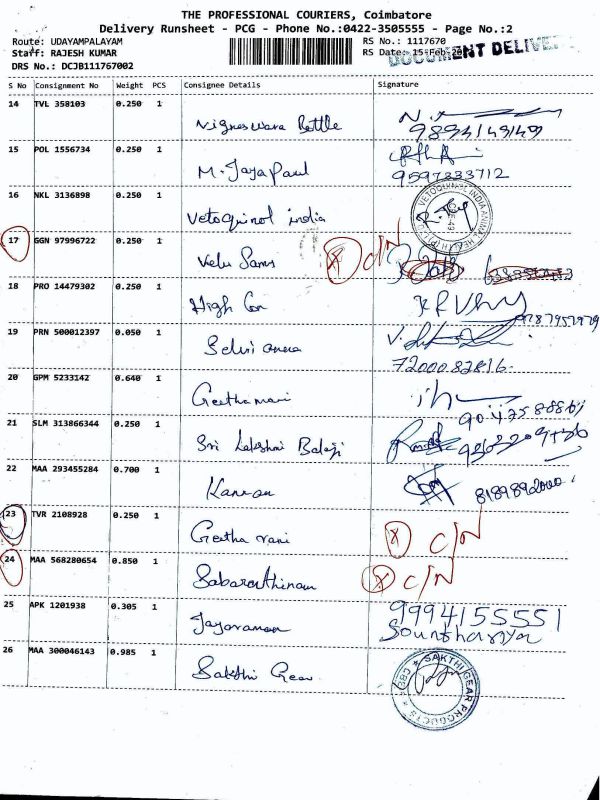 THE PROFESSIONAL COURIERS, Coimbatore
Delivery Runsheet - PCG - Phone No.:0422-3505555 - Page No.:2
Route: UDAYAMPALAYAM
RS No.: 1117670
Staff: RAJESH KUMAR
RS Date: 15-Feb-20
DOCUMENT DELIVE
DRS No.: DCJB111767002
S No Consignment No Weight PCS Consignee Details Signature
14 TVL 358103 0.250 1
9894149149
15 POL 1556734 0.250 1 M. JayaPaul
9597333712
16 NKL 3136898 0.250 1 Vetoquinol india
VETOQUINOL INDIA ANIMAL HEALTH
17 GGN 97996722 0.250 1 Velu Sams X C/N
18 PRO 14479302 0.250 1 High Con
19 PRN 500012397 0.050 1
7200082816
20 GPM 5233142 0.640 1 Geethamani
21 SLM 313866344 0.250 1 Sri Lakshmi Balaji
22 MAA 293455284 0.700 1 Kannan
8189892000
23 TVR 2108928 0.250 1 Geetha rani X C/N
24 MAA 568280654 0.850 1 Sabarathinam X C/N
25 APK 1201938 0.305 1 Jayaraman 9994155551
Sountharyar
26 MAA 300046143 0.985 1 Sakthi Gear
SAKTHI GEAR PRODUCTS CBE